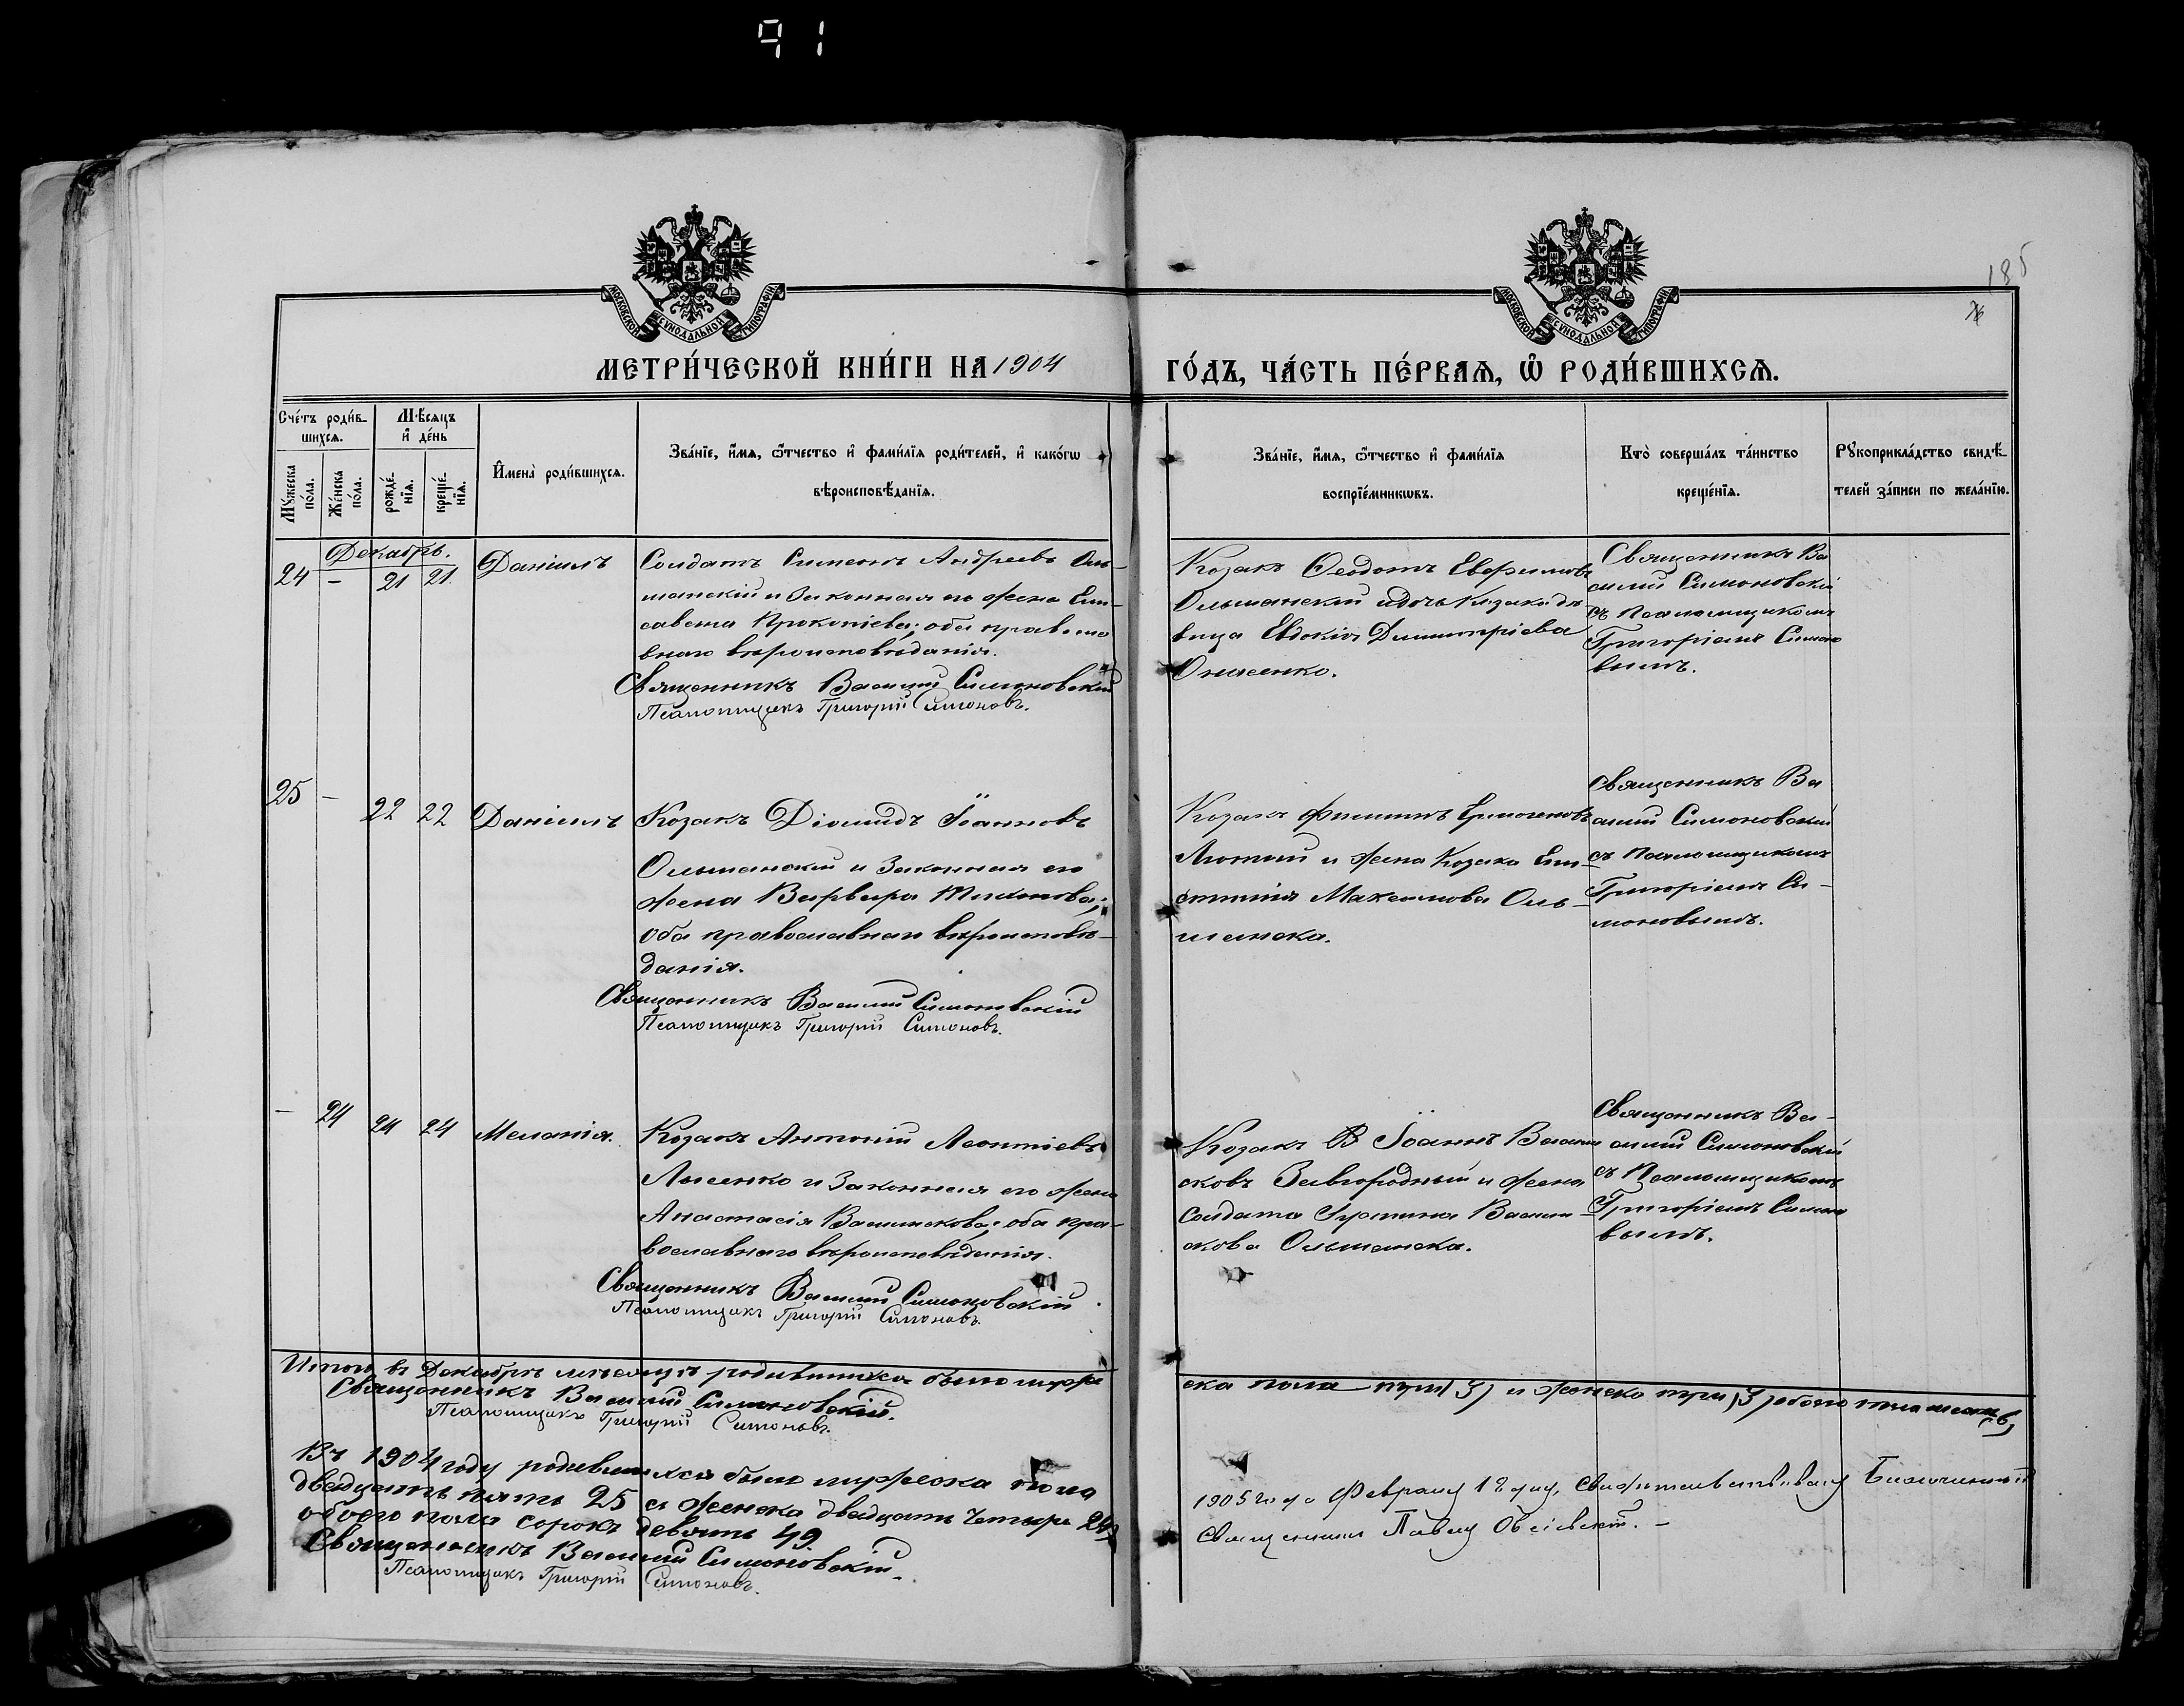 91
185
МОСКОВСКОЙ СУНОДАЛЬНОЙ ТИПОГРАФІИ
МОСКОВСКОЙ СУНОДАЛЬНОЙ ТИПОГРАФІИ
МЕТРИ́ЧЕСКОЙ КНИ́ГИ НА 1904
ГО́ДЪ, ЧА́СТЬ ПЕ́РВАЯ, Ѡ РОДИ́ВШИХСЯ.
Сче́тъ роди́в-
шихся.
Мѣ́сяцъ
и де́нь
Мꙋ́жеска
по́ла.
Же́нска
по́ла.
рожде́-
нїя.
креще́-
нїя.
Имена̀ роди́вшихся.
Зва́нїе, и́мя, ѻ́тчество и фами́лїя роди́телей, и како́гѡ
вѣроисповѣ́данїя.
Зва́нїе, и́мя, ѻ́тчество и фами́лїя
воспрїе́мникѡвъ.
Кто̀ соверша́лъ та́инство
креще́нїя.
Рꙋкоприкла́дство свидѣ́-
телей за́писи по жела́нїю.
Декабрь.
24 – 21 21 Даніилъ
Солдатъ Симеонъ Андреевъ Оль-
шанскій и Законная его жена Ели-
савета Прокопіева; оба правосла
внаго вѣроисповѣданія.
Священникъ Василій Симоновскій
Псаломщикъ Григорій Симоновъ.
Козакъ Ѳеодотъ Евфимовъ
Ольшанскій и дочь Козака дѣ-
вица Евдокія Димитріева
Онисенко.
Священникъ Ва
силій Симоновскій
съ Псаломщикомъ
Григоріемъ Симоно
вымъ.
25 – 22 22 Даніилъ
Козакъ Діомидъ Іоанновъ
Ольшанскій и Законная его
жена Варвара Тихонова;
оба православнаго вѣроисповѣ-
данія.
Священникъ Василій Симоновскій
Псаломщикъ Григорій Симоновъ.
Козакъ Филиппъ Ермогеновъ
Лютый и жена Козака Ев-
Максимова Оль-
шанска.
Священникъ Ва
силій Симоновскій
съ Псаломщикомъ
Григоріемъ Си-
моновымъ.
– 24 24 24 Меланія.
Козакъ Антоній Леонтіевъ
Лысенко и Законная его жена
Анастасія Василискова; оба пра-
вославнаго вѣроисповѣданія.
Священникъ Василій Симоновскій
Псаломщикъ Григорій Симоновъ.
Козакъ В Іоаннъ Васили
сковъ Завгородный и жена
Солдата Іустина Васили-
скова Ольшанска.
Священникъ Ва-
силій Симоновскій
съ Псаломщикомъ
Григоріемъ Симоно
вымъ.
Итого въ Декабрѣ мѣсяцѣ родившихся было муже
ска пола три (3) и женска три (3) обоего пола шесть (6)
Священникъ Василій Симоновскій.
Псаломщикъ Григорій Симоновъ.
Въ 1904 году родившихся было мужеска пола
двадцать пять 25 а женска двадцать четыре 24,
обоего пола сорокъ девять 49
Священникъ Василій Симоновскій.
Псаломщикъ Григорій Симоновъ.
1905 года Февраля 12 дня, Свидѣтельствовалъ Благочинный
Священникъ Павелъ